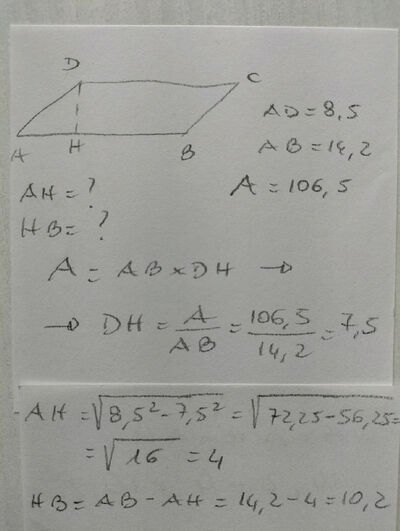 D
C
A H B
AD=8,5
AB=14,2
A=106,5
AH=?
HB=?
A = AB×DH →
→ DH = A/AB = 106,5/14,2 = 7,5
- AH = √8,5²-7,5² = √72,25-56,25 =
= √16 = 4
HB = AB - AH = 14,2 - 4 = 10,2